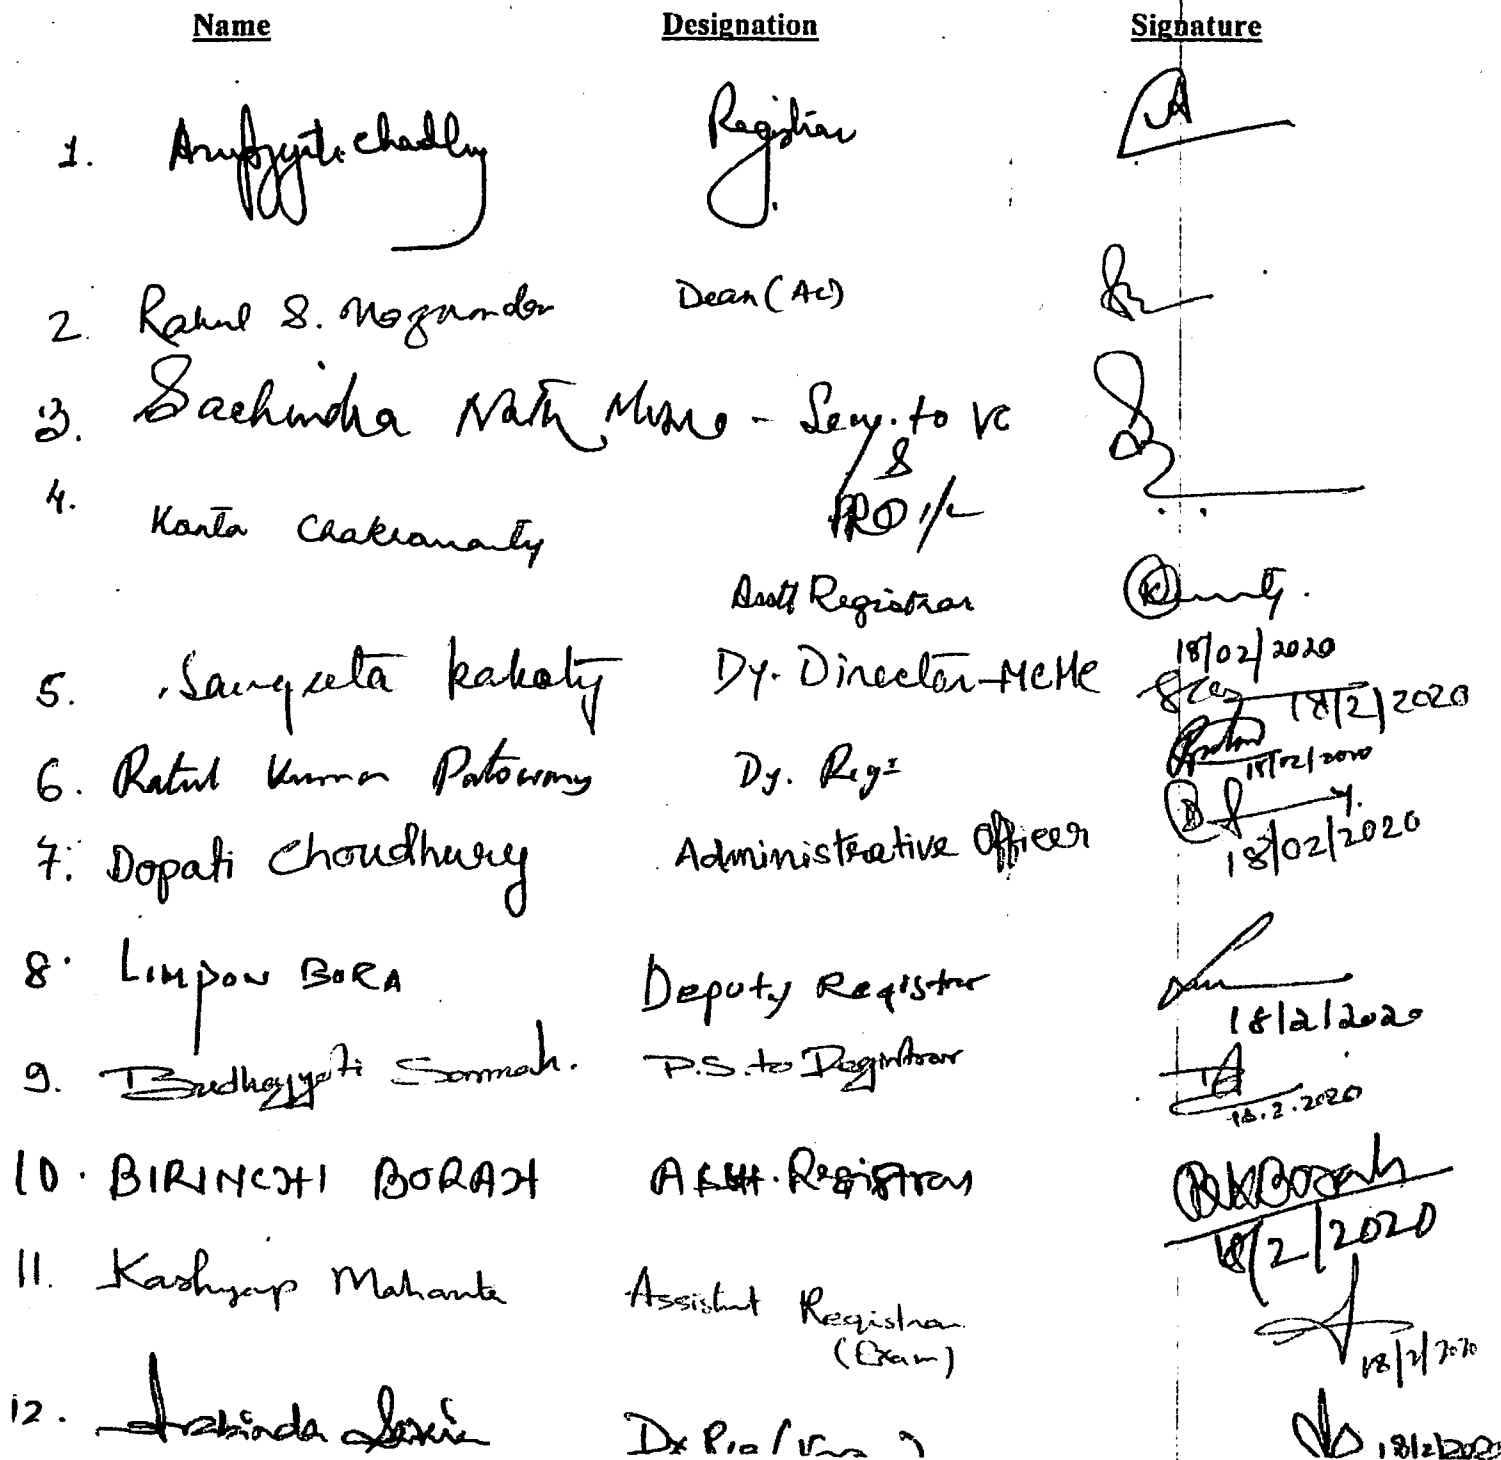 Name Designation Signature
1. Registrar
2. Rahul S. Mozumder Dean (Ac)
3. Sachindra Nath Misra - Secy. to VC
&
4. Kanta Chakravarty PRO i/c
Asstt Registrar
18/02/2020
5. Sangeeta Kakoty Dy. Director-MCMC 18/2/2020
6. Ratul Kumar Patowary Dy. Regr 18/02/2020
7. Dopati Choudhury Administrative Officer
18/02/2020
8. LIMPON BORA Deputy Registrar
18/2/2020
9. Budhajyoti Sarmah. P.S. to Registrar
18.2.2020
10. BIRINCHI BORAH Asstt. Registrar BKBorah
18/2/2020
11. Kashyap Mahanta Assistant Registrar
(Exam) 18/2/2020
12. 18/2/2020